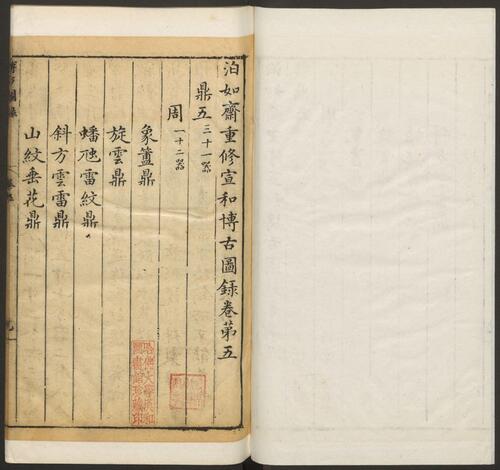 泊如齋重修宣和博古圖録卷第五
鼎五 三十一器
周 一十二器
象簠鼎
旋雲鼎
蟠虺雷紋鼎
斜方雲雷鼎
山紋垂花鼎
哈佛大學漢和
圖書館珍藏印